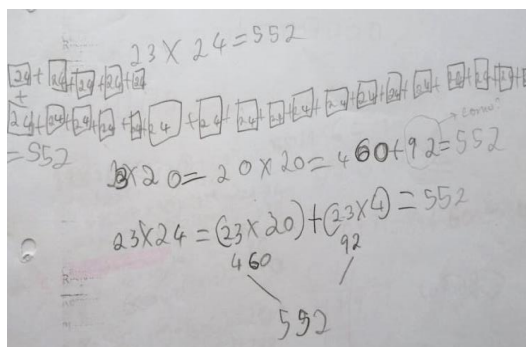 23 X 24 = 552
24 + 24 + 24 + 24 + 24
+
24 + 24 + 24 + 24 + 24 + 24 + 24 + 24 + 24 + 24 + 24 + 24 + 24 + 24 + 24 + 24 + 24 + 24
= 552
23 X 20 = 20 X 20 = 460 + 92 = 552
23 X 24 = (23 X 20) + (23 X 4) = 552
460 92
552